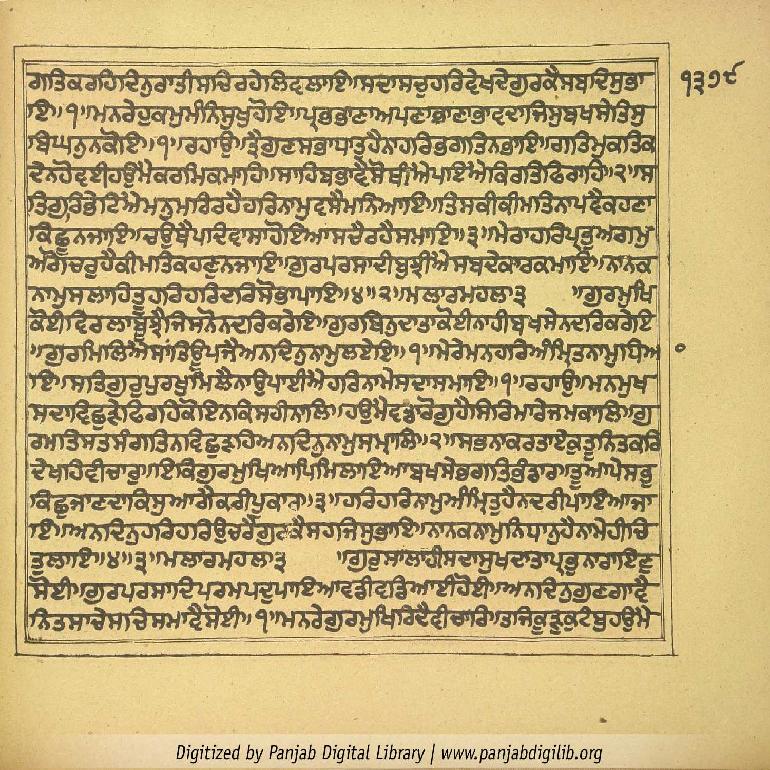 ੧੩੭੯
ਗਤਿਕਰਹਿਦਿਨੁਰਾਤੀਸਚਿਰਹੇਲਿਵਲਾਇ॥ਸਦਾਸਚੁਹਰਿਵੇਖਦੇਗੁਰਕੈਸਬਦਿਸੁਭਾ
ਇ॥੧॥ਮਨਰੇਹੁਕਮੁਮੰਨਿਸੁਖੁਹੋਇ॥ਪ੍ਰਭਭਾਣਾਅਪਣਾਭਾਵਦਾਜਿਸੁਬਖਸੇਤਿਸੁ
ਬਿਘਨੁਨਕੋਇ॥੧॥ਰਹਾਉ॥ਤ੍ਰੈਗੁਣਸਭਾਧਾਤੁਹੈਨਾਹਰਿਭਗਤਿਨਭਾਇ॥ਗਤਿਮੁਕਤਿਕ
ਦੇਨਹੋਵਈਹਉਮੈਕਰਮਕਮਾਹਿ॥ਸਾਹਿਬਭਾਵੈਸੋਥੀਐਪਾਇਐਕਿਰਤਿਫਿਰਾਹਿ॥੨॥ਸ
ਤਿਗੁਰਿਭੇਟਿਐਮਨੁਮਰਿਰਹੈਹਰਿਨਾਮੁਵਸੈਮਨਿਆਇ॥ਤਿਸਕੀਕੀਮਤਿਨਾਪਵੈਕਹਣਾ
ਕਿਛੂਨਜਾਇ॥ਚਉਥੈਪਦਿਵਾਸਾਹੋਇਆਸਚੈਰਹੈਸਮਾਇ॥੩॥ਮੇਰਾਹਰਿਪ੍ਰਭੁਅਗਮੁ
ਅਗੋਚਰੁਹੈਕੀਮਤਿਕਹਣੁਨਜਾਇ॥ਗੁਰਪਰਸਾਦੀਬੁਝੀਐਸਬਦੇਕਾਰਕਮਾਇ॥ਨਾਨਕ
ਨਾਮੁਸਲਾਹਿਤੂਹਰਿਹਰਿਦਰਿਸੋਭਾਪਾਇ॥੪॥੨॥ਮਲਾਰਮਹਲਾ੩ ॥ਗੁਰਮੁਖਿ
ਕੋਈਵਿਰਲਾਬੂਝੈਜਿਸਨੋਨਦਰਿਕਰੇਇ॥ਗੁਰਬਿਨੁਦਾਤਾਕੋਈਨਾਹੀਬਖਸੇਨਦਰਿਕਰੇਇ
॥ਗੁਰਮਿਲਿਐਸਾਂਤਿਊਪਜੈਅਨਦਿਨੁਨਾਮੁਲਏਇ॥੧॥ਮੇਰੇਮਨਹਰਿਅੰਮ੍ਰਿਤਨਾਮੁਧਿਆ
ਇ॥ਸਤਿਗੁਰੁਪੁਰਖੁਮਿਲੈਨਾਉਪਾਈਐਹਰਿਨਾਮੇਸਦਾਸਮਾਇ॥੧॥ਰਹਾਉ॥ਮਨਮੁਖ
ਸਦਾਵਿਛੁੜੇਫਿਰਹਿਕੋਇਨਕਿਸਹੀਨਾਲਿ॥ਹਉਮੈਵਡਾਰੋਗੁਹੈਸਿਰਿਮਾਰੇਜਮਕਾਲਿ॥ਗੁ
ਰਮਤਿਸਤਸੰਗਤਿਨਵਿਛੁੜਹਿਅਨਦਿਨੁਨਾਮੁਸਮ੍ਹਾਲਿ॥੨॥ਸਭਨਾਕਰਤਾਏਕੁਤੂਨਿਤਕਰਿ
ਦੇਖਹਿਵੀਚਾਰੁ॥ਇਕਿਗੁਰਮੁਖਿਆਪਿਮਿਲਾਇਆਬਖਸੇਭਗਤਿਭੰਡਾਰ॥ਤੂਆਪੇਸਭੁ
ਕਿਛੁਜਾਣਦਾਕਿਸੁਆਗੈਕਰੀਪੁਕਾਰ॥੩॥ਹਰਿਹਰਿਨਾਮੁਅੰਮ੍ਰਿਤੁਹੈਨਦਰੀਪਾਇਆਜਾ
ਇ॥ਅਨਦਿਨੁਹਰਿਹਰਿਉਚਰੈਗੁਰਕੈਸਹਜਿਸੁਭਾਇ॥ਨਾਨਕਨਾਮੁਨਿਧਾਨੁਹੈਨਾਮੇਹੀਚਿ
ਤੁਲਾਇ॥੪॥੩॥ਮਲਾਰਮਹਲਾ੩ ॥ਗੁਰੁਸਾਲਾਹੀਸਦਾਸੁਖਦਾਤਾਪ੍ਰਭੁਨਾਰਾਇਣੁ
ਸੋਈ॥ਗੁਰਪਰਸਾਦਿਪਰਮਪਦੁਪਾਇਆਵਡੀਵਡਿਆਈਹੋਈ॥ਅਨਦਿਨੁਗੁਣਗਾਵੈ
ਨਿਤਸਾਚੇਸਚਿਸਮਾਵੈਸੋਈ॥੧॥ਮਨਰੇਗੁਰਮੁਖਿਰਿਦੈਵੀਚਾਰਿ॥ਤਜਿਕੂੜੁਕੁਟੰਬੁਹਉਮੈ
Digitized by Panjab Digital Library | www.panjabdigilib.org